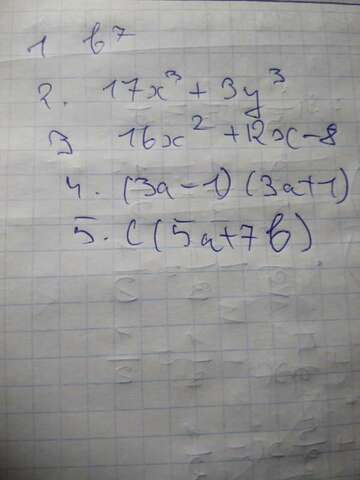 1 b⁷
2. 17x³ + 3y³
3 16x² + 12x - 8
4. (3a - 1) (3a + 1)
5. c (5a + 7b)